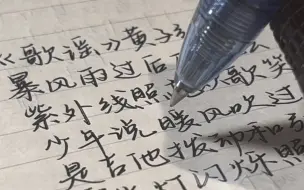 《歌谣》黄子
暴风雨过后
紫外线照 歌笑
少年说暖风吹过
是吉他拨动和
灯闪烁照